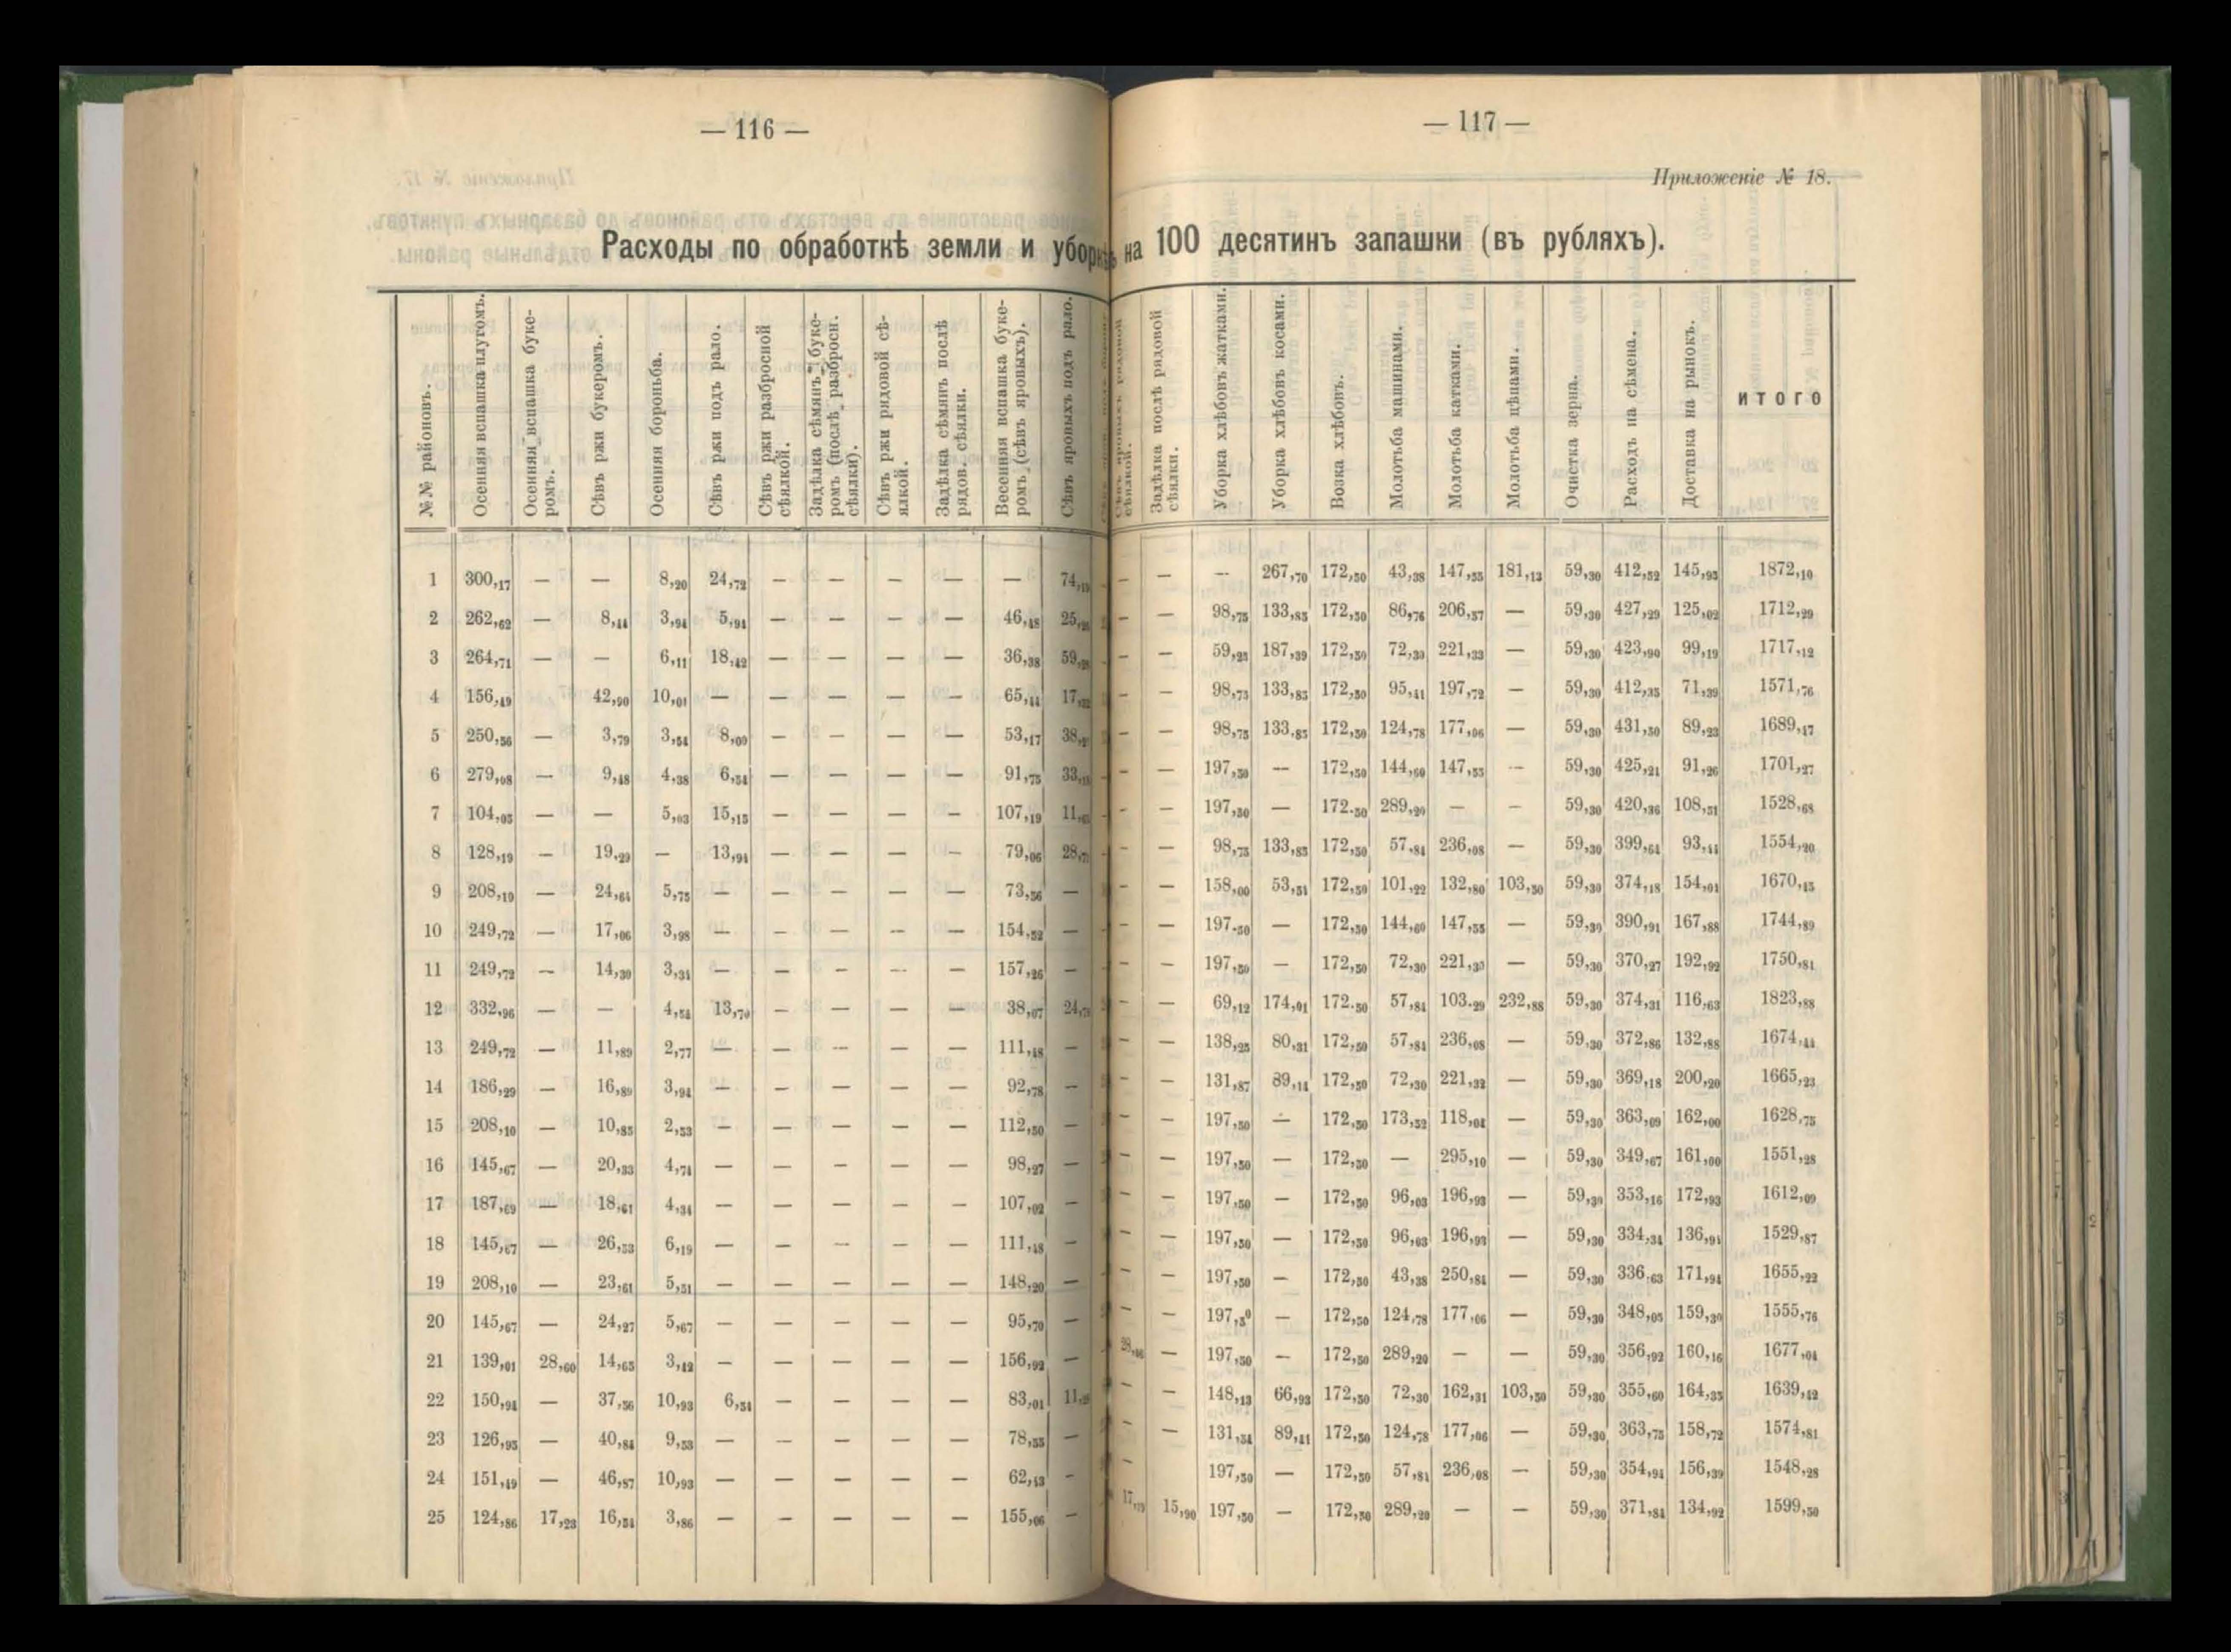 — 116 —
— 117 —
Приложеніе № 18.
Расходы по обработкѣ земли и уборкѣ на 100 десятинъ запашки (въ рубляхъ).
№№ районовъ.
Осенняя вспашка плугомъ.
Осенняя вспашка буке-
ромъ.
Сѣвъ ржи букеромъ.
Осенняя бороньба.
Сѣвъ ржи подъ рало.
Сѣвъ ржи разбросной
сѣялкой.
Задѣлка сѣмянъ буке-
ромъ (послѣ разбросн.
сѣялки).
Сѣвъ ржи рядовой сѣ-
ялкой.
Задѣлка сѣмянъ послѣ
рядов. сѣялки.
Весенняя вспашка буке-
ромъ (сѣвъ яровыхъ).
Сѣвъ яровыхъ подъ рало.
Сѣвъ яровыхъ рядовой
сѣялкой.
Задѣлка послѣ рядовой
сѣялки.
Уборка хлѣбовъ жатками.
Уборка хлѣбовъ косами.
Возка хлѣбовъ.
Молотьба машинами.
Молотьба катками.
Молотьба цѣпами.
Очистка зерна.
Расходъ на сѣмена.
Доставка на рынокъ.
ИТОГО
1 300,17 — — 8,20 24,72 — — — — — 74, — — — 267,70 172,50 43,38 147,55 181,13 59,30 412,52 145,93 1872,10
2 262,62 — 8,44 3,94 5,94 — — — — 46,48 25, — — 98,75 133,85 172,50 86,76 206,57 — 59,30 427,29 125,02 1712,29
3 264,71 — — 6,11 18,42 — — — — 36,38 59, — — 59,25 187,39 172,50 72,30 221,33 — 59,30 423,90 99,19 1717,12
4 156,49 — 42,90 10,01 — — — — — 65,44 17, — — 98,75 133,85 172,50 95,41 197,72 — 59,30 412,35 71,39 1571,76
5 250,56 — 3,79 3,54 8,00 — — — — 53,17 38, — — 98,75 133,85 172,50 124,78 177,06 — 59,30 431,50 89,23 1689,47
6 279,08 — 9,48 4,38 6,54 — — — — 91,75 33, — — 197,50 — 172,50 144,60 147,55 — 59,30 425,21 91,26 1701,27
7 104,05 — — 5,03 15,15 — — — — 107,19 11, — — 197,50 — 172.50 289,20 — — 59,30 420,36 108,51 1528,68
8 128,19 — 19,29 — 13,94 — — — — 79,06 28, — — 98,75 133,85 172,50 57,84 236,08 — 59,30 399,64 93,44 1554,20
9 208,10 — 24,64 5,75 — — — — — 73,56 — — — 158,00 53,54 172,50 101,22 132,80 103,50 59,30 374,18 154,01 1670,45
10 249,72 — 17,06 3,98 — — — — — 154,52 — — — 197.50 — 172,50 144,60 147,55 — 59,30 390,91 167,88 1744,89
11 249,72 — 14,30 3,34 — — — — — 157,26 — — — 197,50 — 172,50 72,30 221,33 — 59,30 370,27 192,92 1750,81
12 332,96 — — 4,54 13,70 — — — — 38,07 24, — — 69,12 174,01 172.50 57,84 103.29 232,88 59,30 374,31 116,63 1823,88
13 249,72 — 11,89 2,77 — — — — — 111,48 — — — 138,25 80,31 172,50 57,84 236,08 — 59,30 372,86 132,88 1674,44
14 186,29 — 16,89 3,94 — — — — — 92,78 — — — 131,87 89,14 172,50 72,30 221,32 — 59,30 369,18 200,20 1665,23
15 208,10 — 10,85 2,53 — — — — — 112,50 — — — 197,50 — 172,50 173,52 118,04 — 59,30 363,09 162,00 1628,75
16 145,67 — 20,33 4,74 — — — — — 98,27 — — — 197,50 — 172,50 — 295,10 — 59,30 349,67 161,00 1551,28
17 187,69 — 18,61 4,34 — — — — — 107,02 — — — 197,50 — 172,50 96,03 196,93 — 59,30 353,16 172,93 1612,09
18 145,67 — 26,53 6,19 — — — — — 111,48 — — — 197,50 — 172,50 96,03 196,93 — 59,30 334,34 136,91 1529,87
19 208,10 — 23,61 5,51 — — — — — 148,20 — — — 197,50 — 172,50 43,38 250,84 — 59,30 336.63 171,94 1655,22
20 145,67 — 24,27 5,67 — — — — — 95,70 — — — 197,50 — 172,50 124,78 177,06 — 59,30 348,05 159,30 1555,76
21 139,01 28,60 14,65 3,42 — — — — — 156,92 — 28, — 197,50 — 172,50 289,20 — — 59,30 356,92 160,16 1677,04
22 150,94 — 37,56 10,93 6,54 — — — — 83,01 11, — — 148,13 66,93 172,50 72,30 162,31 103,50 59,30 355,60 164,35 1639,42
23 126,95 — 40,84 9,53 — — — — — 78,55 — — — 131,54 89,41 172,50 124,78 177,06 — 59,30 363,75 158,72 1574,81
24 151,49 — 46,87 10,93 — — — — — 62,43 — — 197,50 — 172,50 57,84 236,08 — 59,30 354,94 156,39 1548,28
25 124,86 17,23 16,54 3,86 — — — — — 155,06 — 17, 15,90 197,50 — 172,50 289,20 — — 59,30 371,84 134,92 1599,50